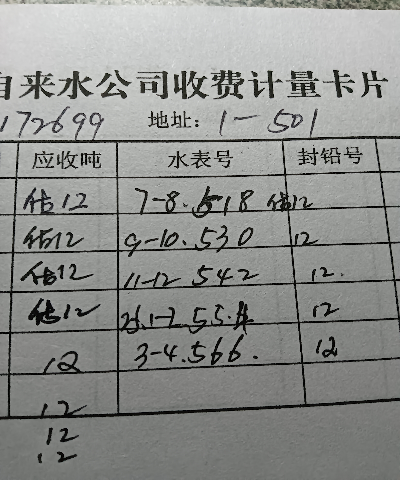 自来水公司收费计量卡片
172699 地址: 1-501
应收吨 水表号 封铅号
估12 7-8.518 估12
估12 9-10.530 12
估12 11-12 542 12.
估12 26.1-2 554 12
12 3-4.566. 12
12
12
12